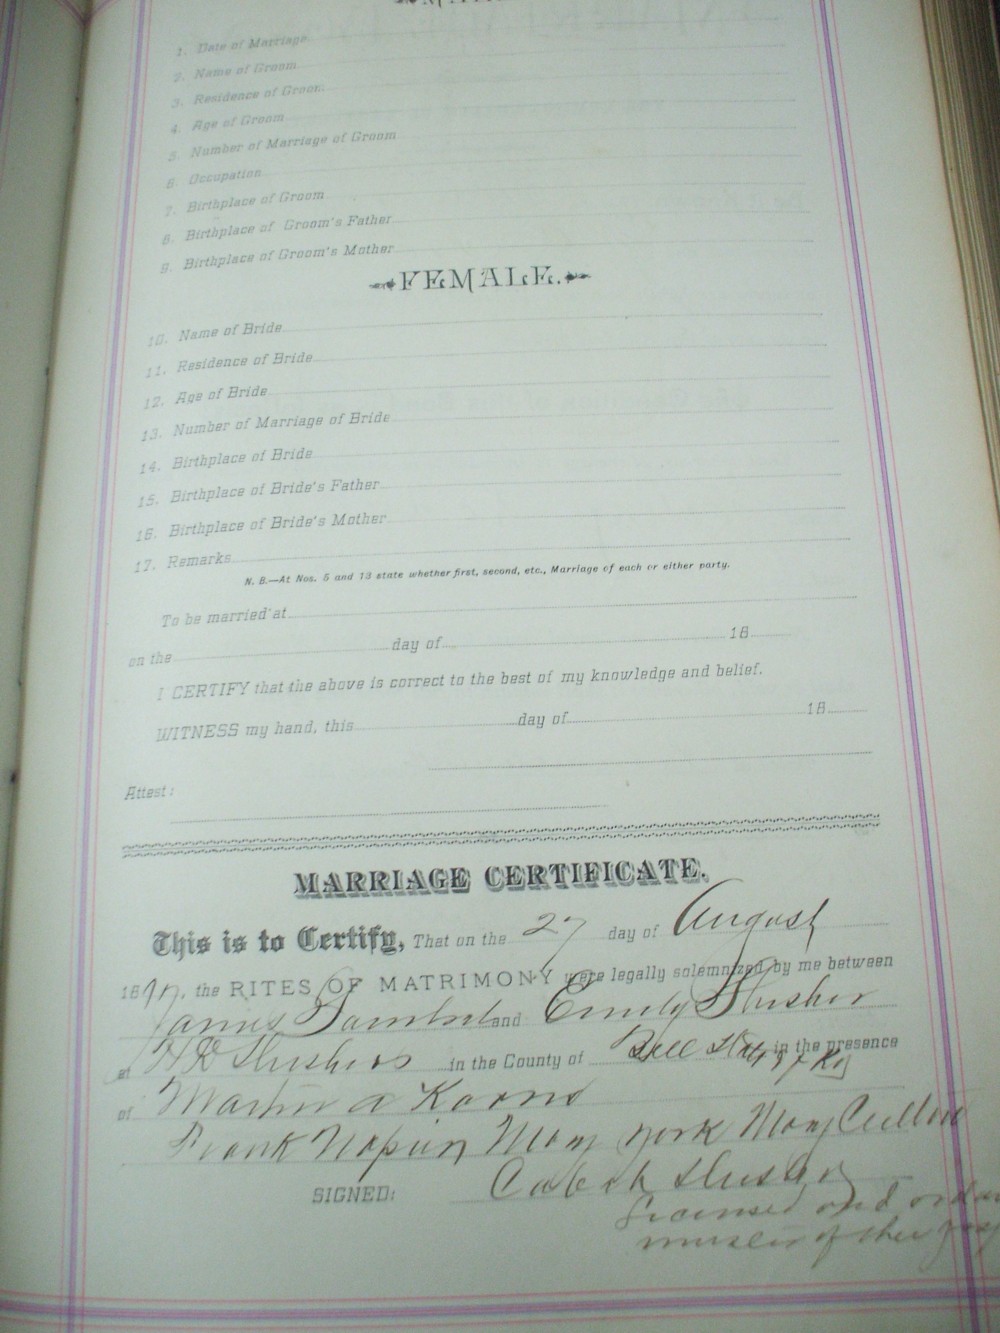 1. Date of Marriage
2. Name of Groom
3. Residence of Groom
4. Age of Groom
5. Number of Marriage of Groom
6. Occupation
7. Birthplace of Groom
8. Birthplace of Groom's Father
9. Birthplace of Groom's Mother
FEMALE.
10. Name of Bride
11. Residence of Bride
12. Age of Bride
13. Number of Marriage of Bride
14. Birthplace of Bride
15. Birthplace of Bride's Father
16. Birthplace of Bride's Mother
17. Remarks
N. B.—At Nos. 5 and 13 state whether first, second, etc., Marriage of each or either party.
To be married at
on the day of 18
I CERTIFY that the above is correct to the best of my knowledge and belief.
WITNESS my hand, this day of 18
Attest:
MARRIAGE CERTIFICATE.
This is to Certify, That on the 27 day of August
18 , the RITES OF MATRIMONY were legally solemnized by me between
James and Emily Slusher
at H Slushers in the County of Bell in the presence
of Martin a Koons
Frank Mary York Mary
SIGNED: Slusher
Licensed and
of the